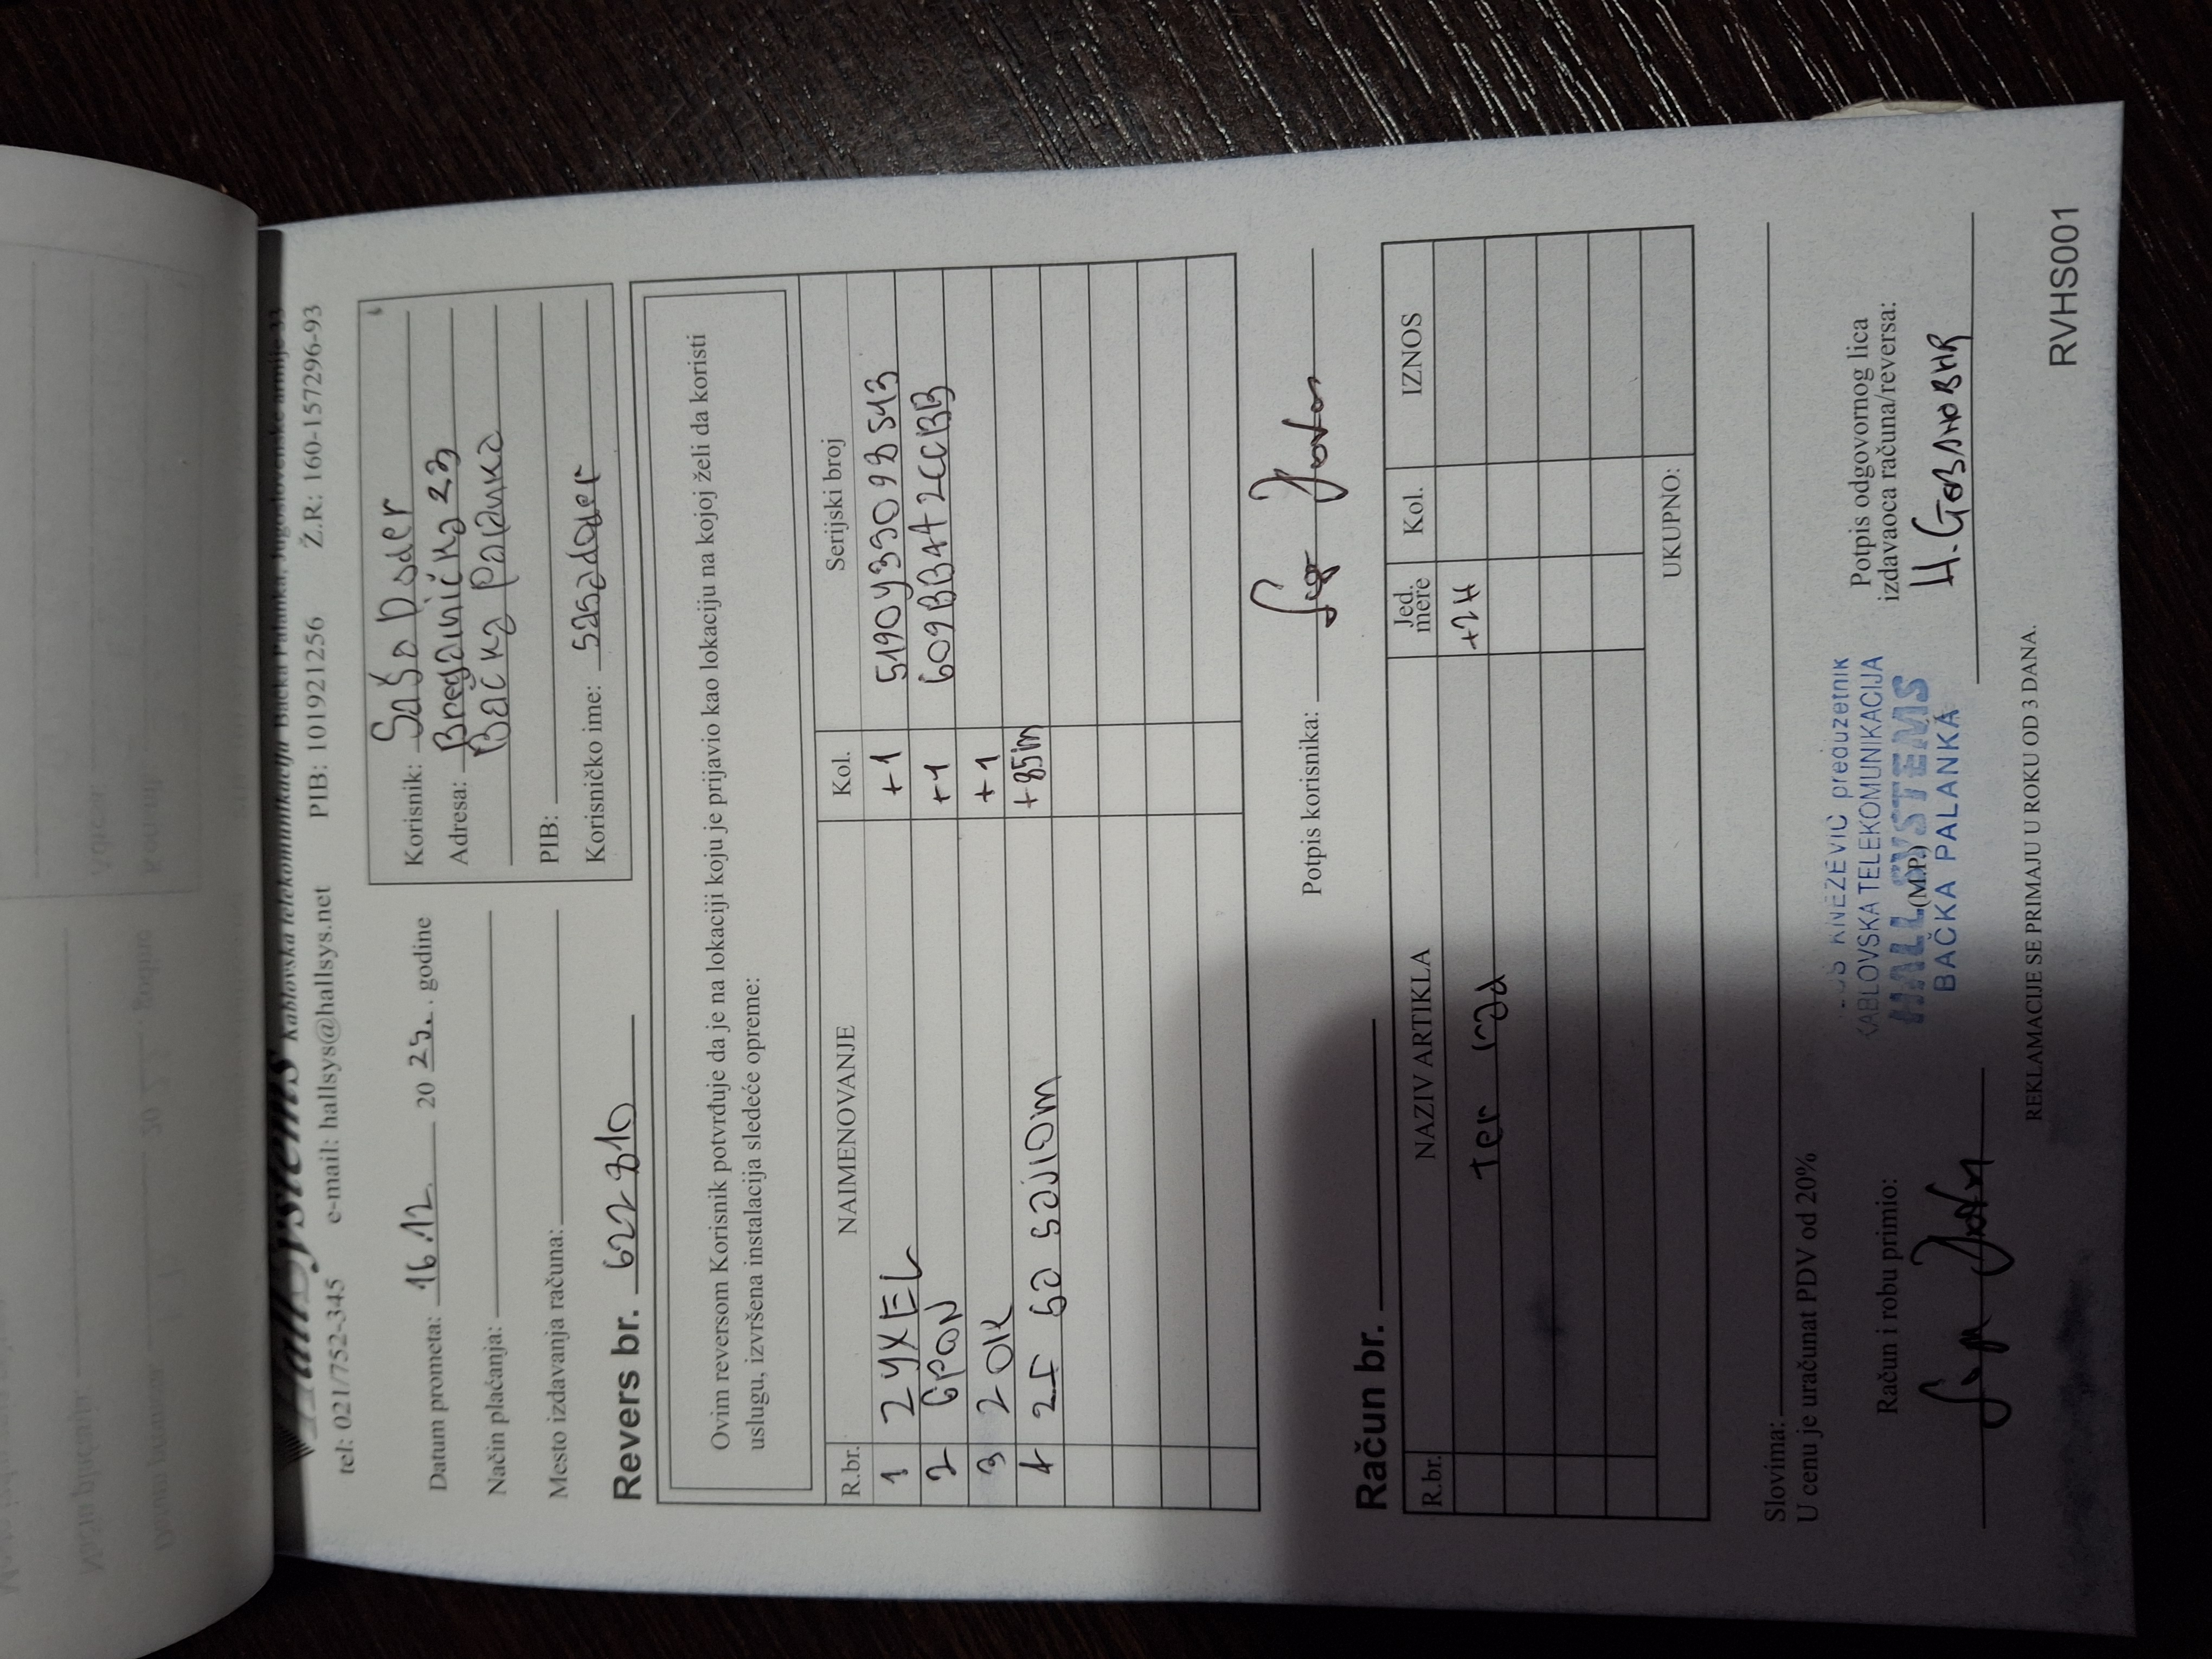 HallSystems Kablovska telekomunikacija Bačka Palanka, Jugoslovenske armije 33
tel: 021/752-345 e-mail: hallsys@hallsys.net PIB: 101921256 Ž.R: 160-157296-93
Datum prometa: 16.12. 2025. godine
Način plaćanja:
Mesto izdavanja računa:
Korisnik: Saša Doder
Adresa: Bregalnička 23
Bačka Palanka
PIB:
Korisničko ime: sasadoder
Revers br. 622810
Ovim reversom Korisnik potvrđuje da je na lokaciji koju je prijavio kao lokaciju na kojoj želi da koristi
uslugu, izvršena instalacija sledeće opreme:
R.br. NAIMENOVANJE Kol. Serijski broj
1 ZYXEL +1
2 GPON +1 609BBA42CCBB
3 ZOK +1
4 2F sa sajlom +85m
Potpis korisnika:
Račun br.
R.br. NAZIV ARTIKLA Jed. mere Kol. IZNOS
ter rad +2H
UKUPNO:
Slovima:
U cenu je uračunat PDV od 20%
Račun i robu primio:
KNEZEVIĆ preduzetnik
KABLOVSKA TELEKOMUNIKACIJA
HALL SYSTEMS
(M.P.)
BAČKA PALANKA
Potpis odgovornog lica
izdavaoca računa/reversa:
REKLAMACIJE SE PRIMAJU U ROKU OD 3 DANA.
RVHS001